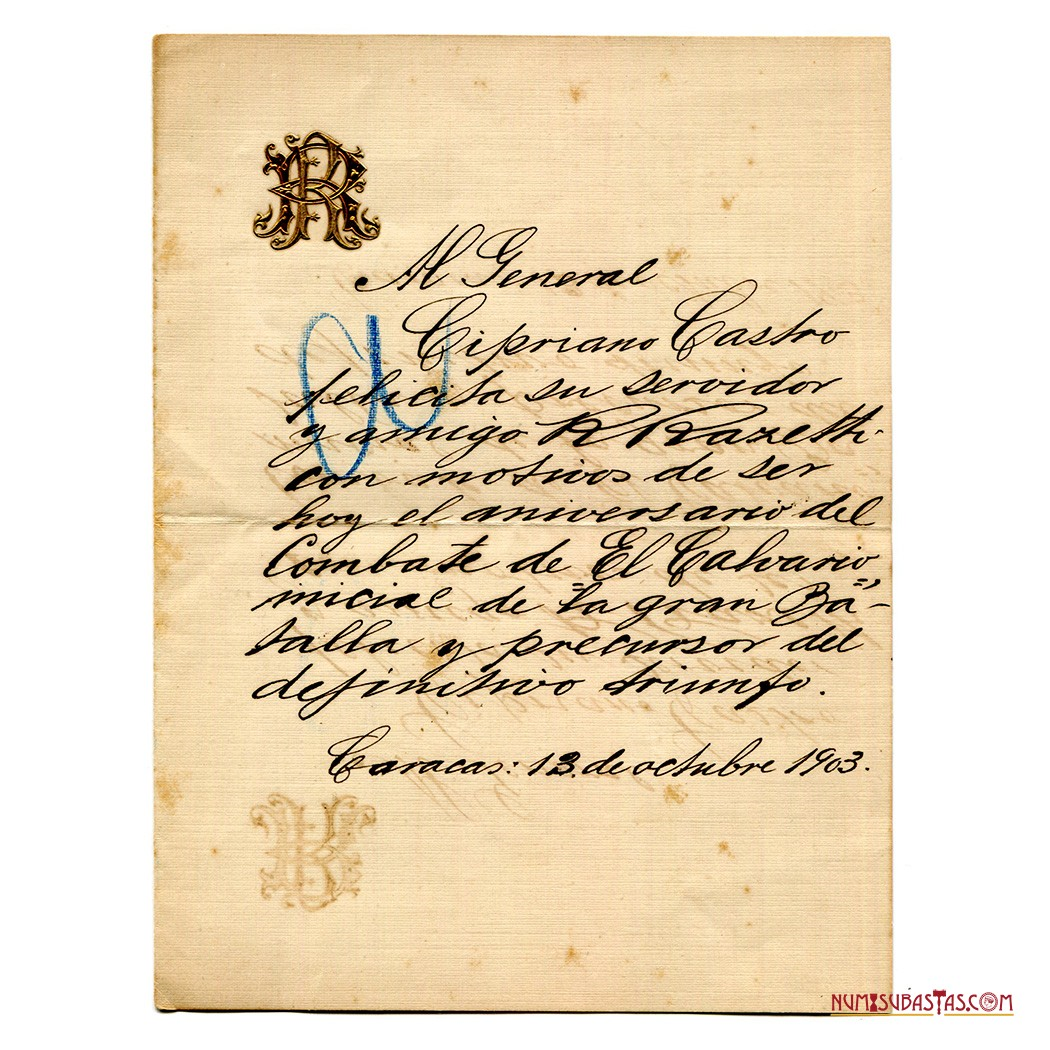 RR
Al General
Cipriano Castro
felicita su servidor
y amigo R Razetti
con motivos de ser
hoy el aniversario del
Combate de El Calvario,
inicial de "la gran Ba"-
talla y precursor del
definitivo triunfo.
Caracas: 13. de octubre 1903.
NUMISUBASTAS.COM